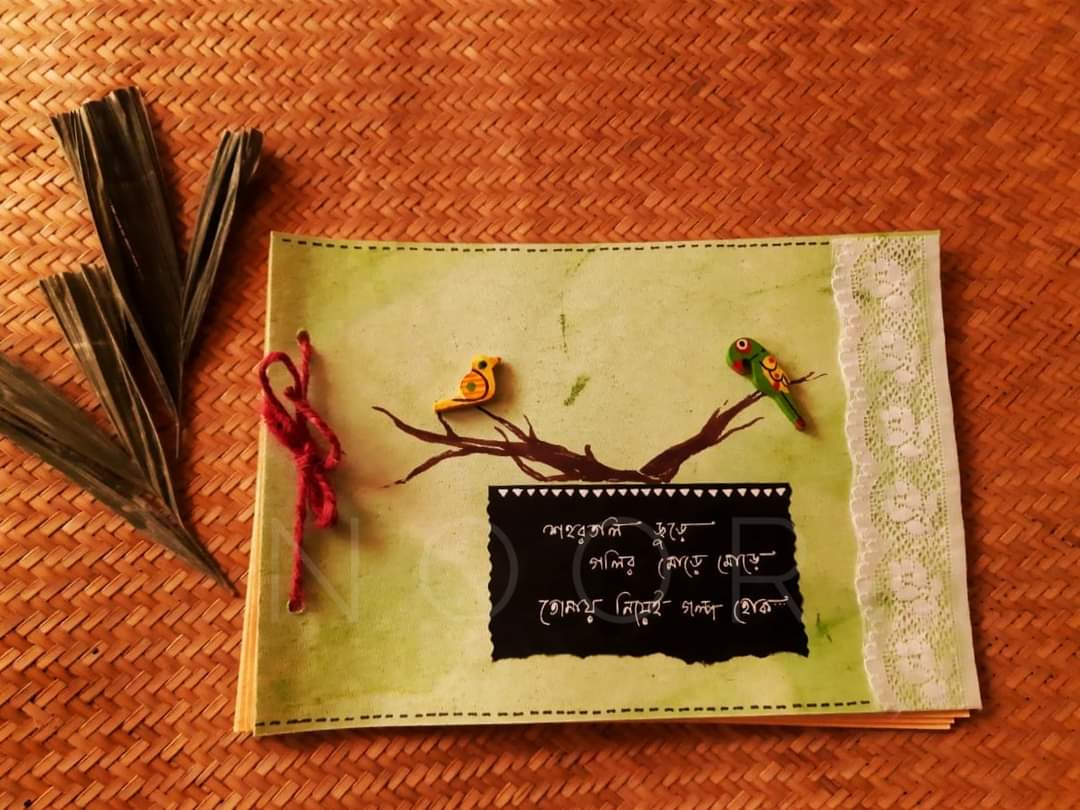 শহরতলি জুড়ে
গলির মোড়ে মোড়ে
তোমায় নিয়েই গল্প হোক...
NOOR